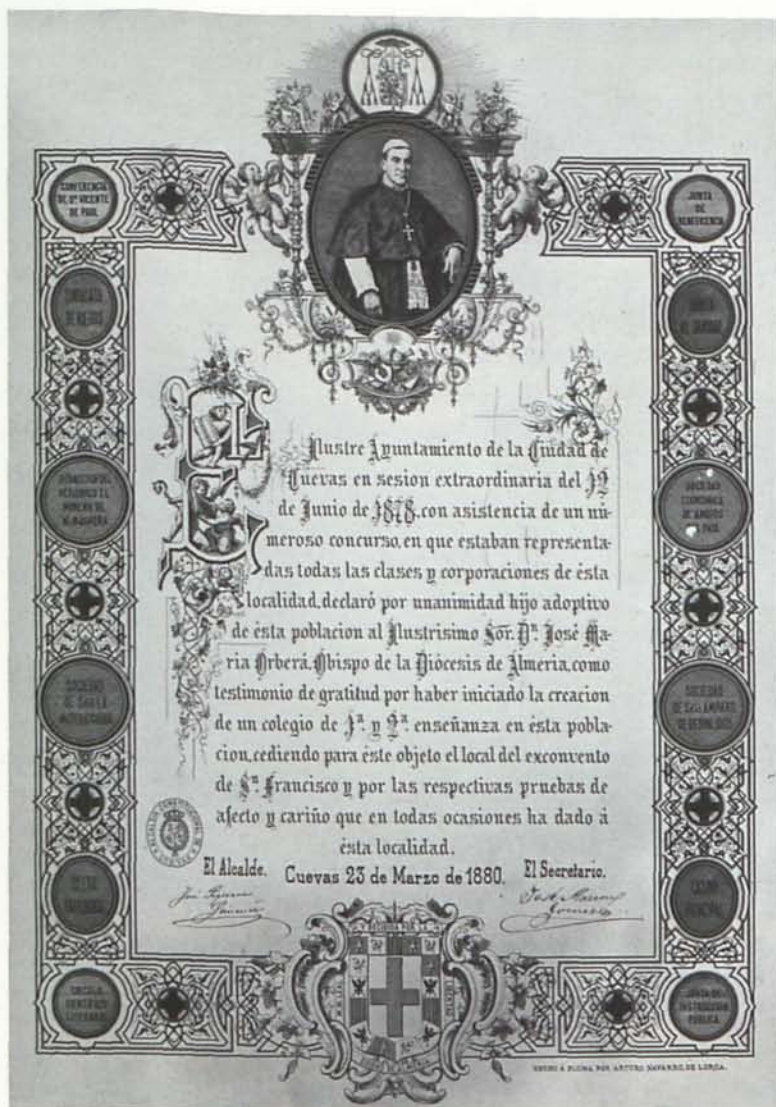 CONFERENCIA
DE Sn. VICENTE
DE PAUL
JUNTA
DE
BENEFICENCIA
SINDICATO
DE RIEGOS
JUNTA
DE SANIDAD
REDACCION DEL
PERIODICO EL
MINERO DE
ALMAGRERA
SOCIEDAD
ECONOMICA
DE AMIGOS
PAIS
SOCIEDAD
DE
SOCIEDAD
CIRCULO
CIENTIFICO
LITERARIO
JUNTA DE
INSTRUCCION
PUBLICA
EL
Ilustre Ayuntamiento de la Ciudad de
Cuevas en sesion extraordinaria del 12
de Junio de 1878, con asistencia de un nú-
meroso concurso, en que estaban representa-
das todas las clases y corporaciones de ésta
localidad, declaró por unanimidad hijo adoptivo
de ésta poblacion al Ilustrisimo Sor. Dn. José Ma-
ria Orberá, Obispo de la Diócesis de Almeria, como
testimonio de gratitud por haber iniciado la creacion
de un colegio de 1ª. y 2ª. enseñanza en ésta pobla-
cion, cediendo para éste objeto el local del exconvento
de Sn. Francisco y por las respectivas pruebas de
afecto y cariño que en todas ocasiones ha dado á
ésta localidad.
El Alcalde. Cuevas 23 de Marzo de 1880. El Secretario.
ALCALDIA CONSTITUCIONAL DE CUEVAS
HECHO Á PLUMA POR ARTURO NAVARRO, DE LORCA.